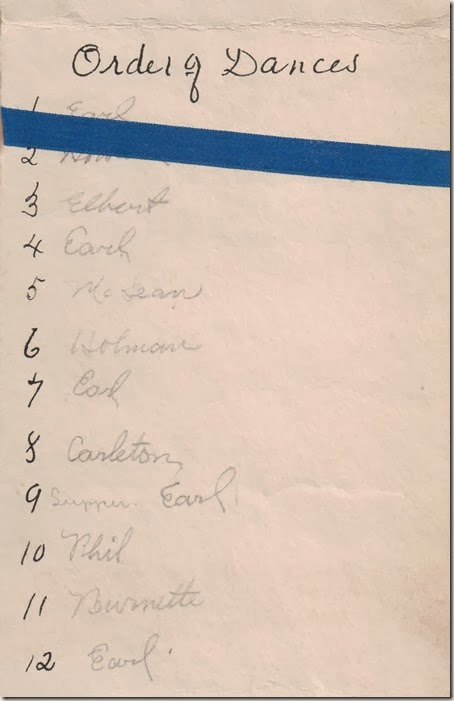 Order of Dances
1 Earl
2
3 Elbert
4 Earl
5 McLean
6 Holman
7 Earl
8 Carleton
9 Supper. Earl
10 Phil
11 Burnette
12 Earl.